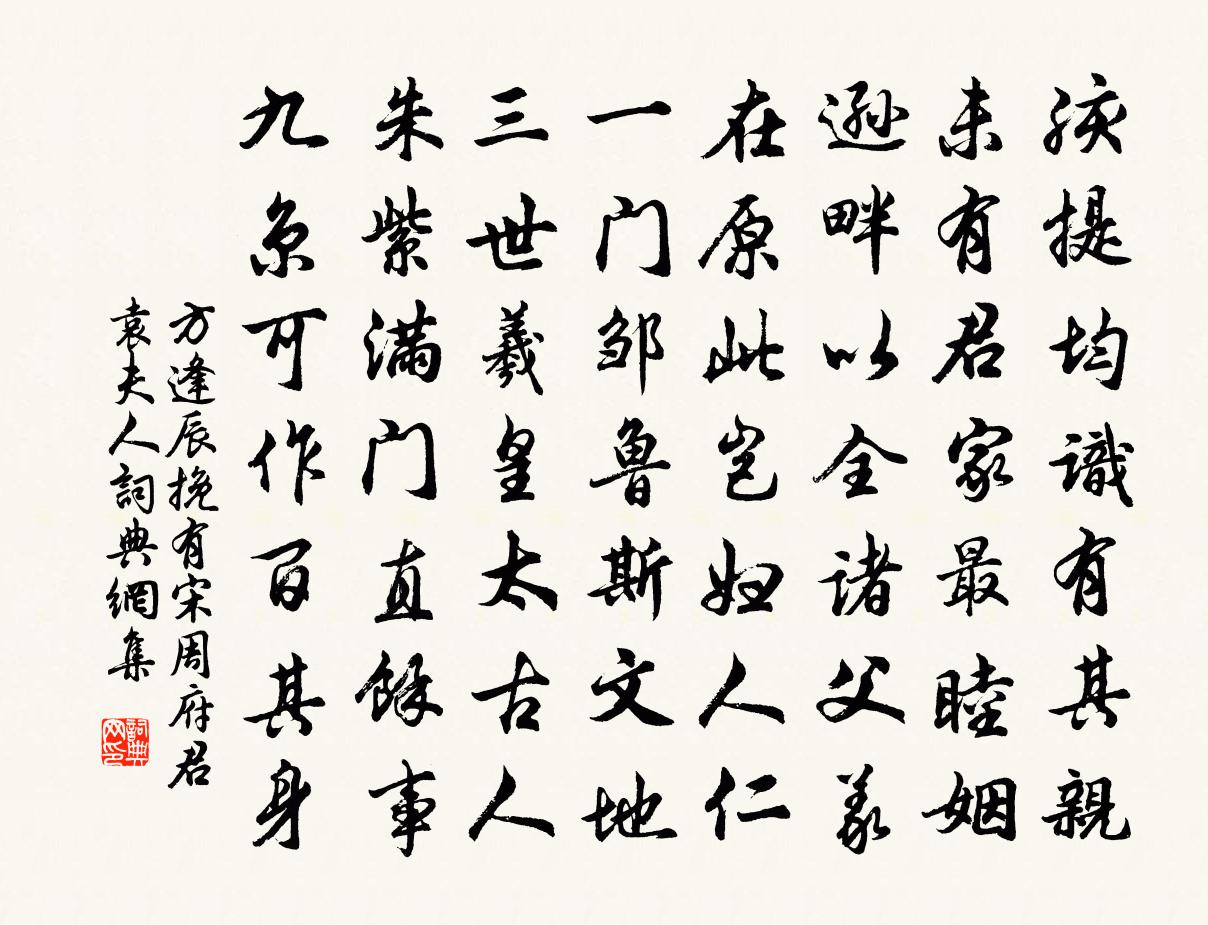 孩提均識有其親
未有君家最睦姻
遜畔以全諸父義
在原此豈妇人仁
一门邹鲁斯文地
三世羲皇太古人
朱紫满门直餘事
九原可作百其身
方逢辰挽有宋周府君
袁夫人詞典網集
詞典网印